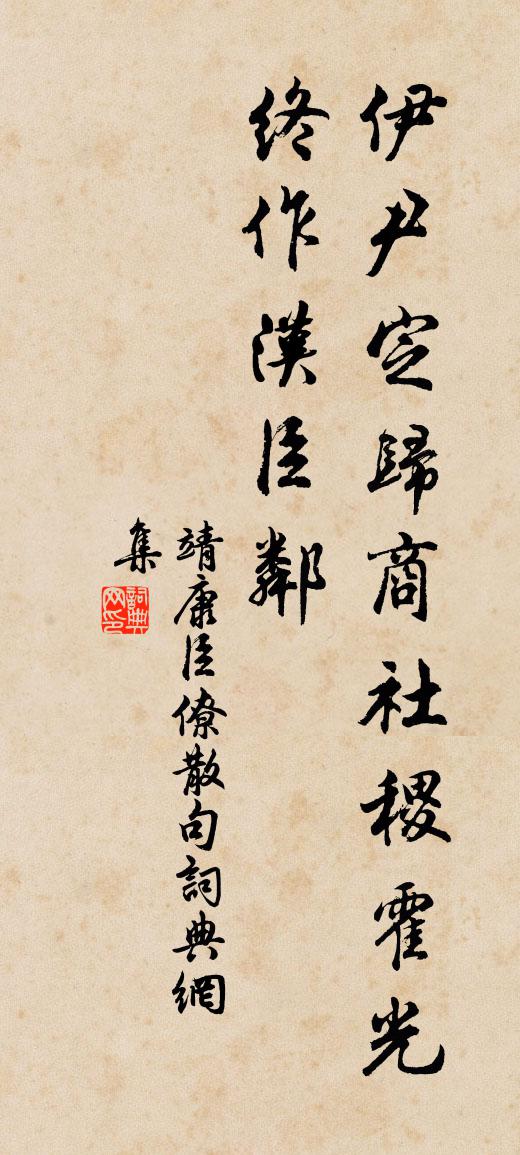 伊尹定歸商社稷霍光
終作漢臣鄰
靖康臣僚散句詞典網
集
詞典网印